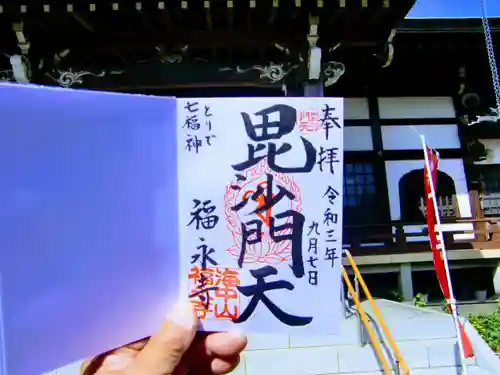 奉拝
令和三年
九月七日
毘沙門天
とりで
七福神
福永寺
海中山
福永寺
七福神